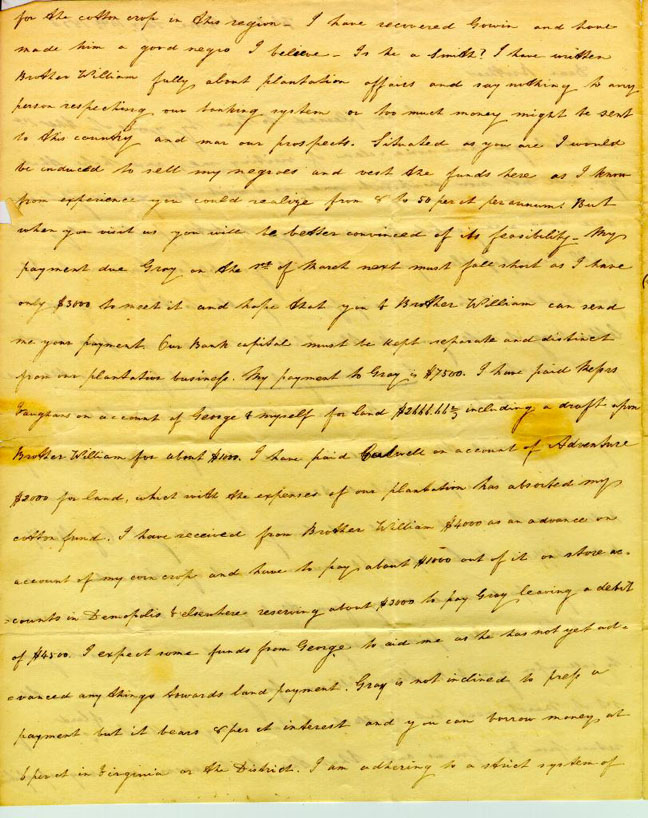 for the cotton crop in this region – I have recovered Gowin and have
made him a good negro I believe – Is he a Smith? I have written
Brother William fully about plantation affairs and say nothing to any
person respecting our banking system or too much money might be sent
to this country and mar our prospects. Situated as you are I would
be induced to sell my negroes and vest the funds here as I know
from experience you could realize from 8 to 50 per ct per annum. But
when you visit us you will be better convinced of its feasibility – My
payment due Gray on the 1st of March next must fall short as I have
only $3000 to meet it and hope that you & Brother William can send
me your payment. Our Bank capital must be kept separate and distinct
from our plantation business. My payment to Gray is $7500. I have paid Messrs
Vaughans on account of George & myself for land $2666.66⅔ including a draft upon
Brother William for about $1100. I have paid on account of Adventure
$2000 for land, which with the expenses of our plantation has absorbed my
cotton fund. I have received from Brother William $4000 as an advance on
account of my corn crop and have to pay about $1000 out of it on store ac-
-counts in Demopolis & elsewhere reserving about $3000 to pay Gray leaving a debit
of $4500. I expect some funds from George to aid me as he has not yet ad-
-vanced any things towards land payment. Gray is not inclined to press a
payment but it bears 8 per ct interest and you can borrow money at
6 per ct in Virginia or the District. I am adhering to a strict system of